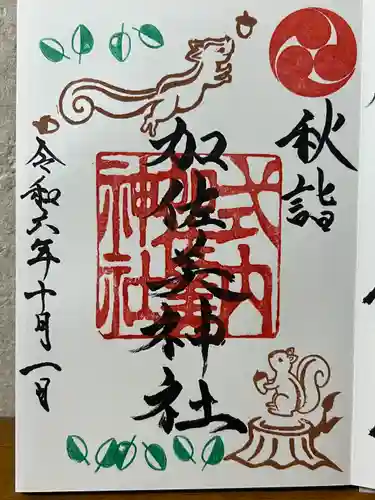 秋詣
加佐美神社
式内
神社
令和六年十月一日